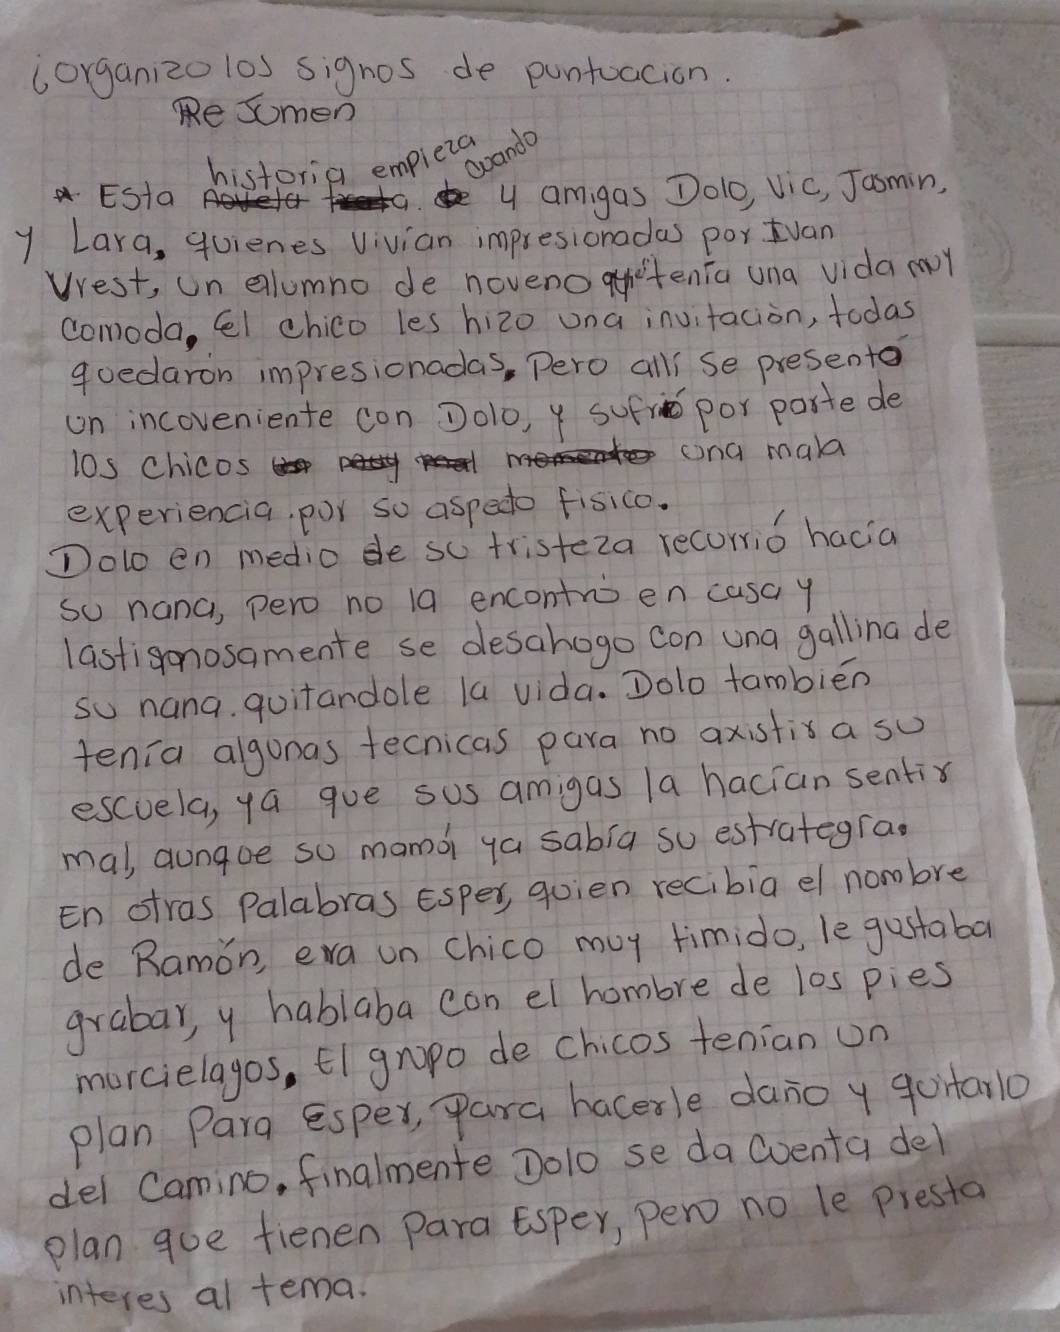 ¡organizo los signos de puntuacion.
Resumen
historia empieza cuando
* Esta a. 4 amigas Dolo, Vic, Jasmin,
y Lara, quienes vivían impresionadas por Ivan
Vrest, un alumno de noveno que tenía una vida muy
comoda, el chico les hizo una invitación, todas
quedarón impresionadas, Pero allí se presentó
un incoveniente con Dolo, y sufrió por parte de
los chicos una mala
experiencia. por su aspecto físico.
Dolo en medio de su tristeza recurrió hacía
su nana, pero no la encontró en casa y
se desahogo con una gallina de
su nana. quitandole la vida. Dolo tambíen
tenía algunas tecnicas para no axistir a su
escuela, ya que sus amigas la hacían sentir
mal, aunque su mamá ya sabía su estrategia.
En otras Palabras Esper, quien recibia el nombre
de Ramón, era un chico muy timido, le gustaba
grabar, y hablaba con el hombre de los pies
murcielagos. El grupo de chicos tenian un
plan Para Esper, para hacerle daño y quitarlo
del Camino. finalmente Dolo se da cuenta del
plan que tienen Para Esper, pero no le presta
interes al tema.